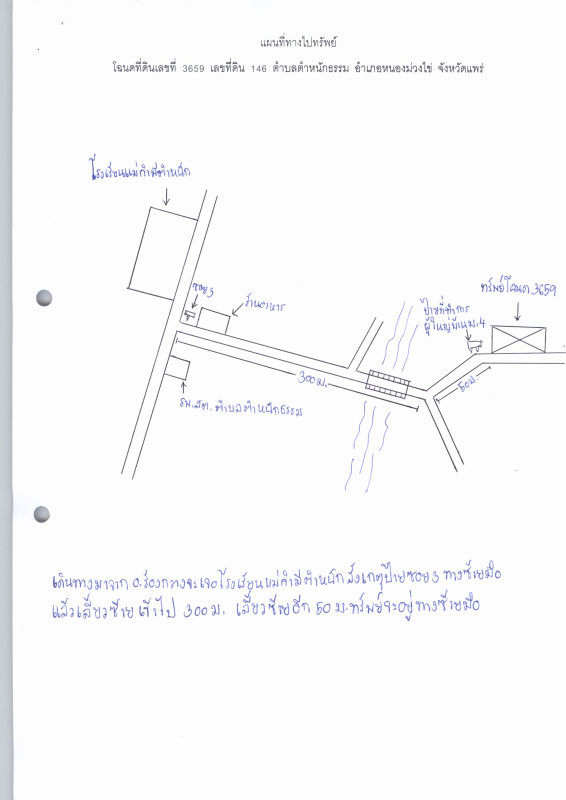 แผนที่ทางไปทรัพย์
โฉนดที่ดินเลขที่ 3659 เลขที่ดิน 146 ตำบลตำหนักธรรม อำเภอหนองม่วงไข่ จังหวัดแพร่
โรงเรียนแม่คำมีตำหนัก
ซอย 3
ร้านอาหาร
ทรัพย์โฉนด 3659
ป้ายที่ทำการ
ผู้ใหญ่บ้าน ม.4
300 ม.
50 ม.
รพ.สต. ตำบลตำหนักธรรม
เดินทางมาจาก อ.ร้องกวางจะเจอโรงเรียนแม่คำมีตำหนัก สังเกตุป้ายซอย 3 ทางซ้ายมือ
แล้วเลี้ยวซ้ายเข้าไป 300 ม. เลี้ยวซ้ายอีก 50 ม. ทรัพย์จะอยู่ทางซ้ายมือ